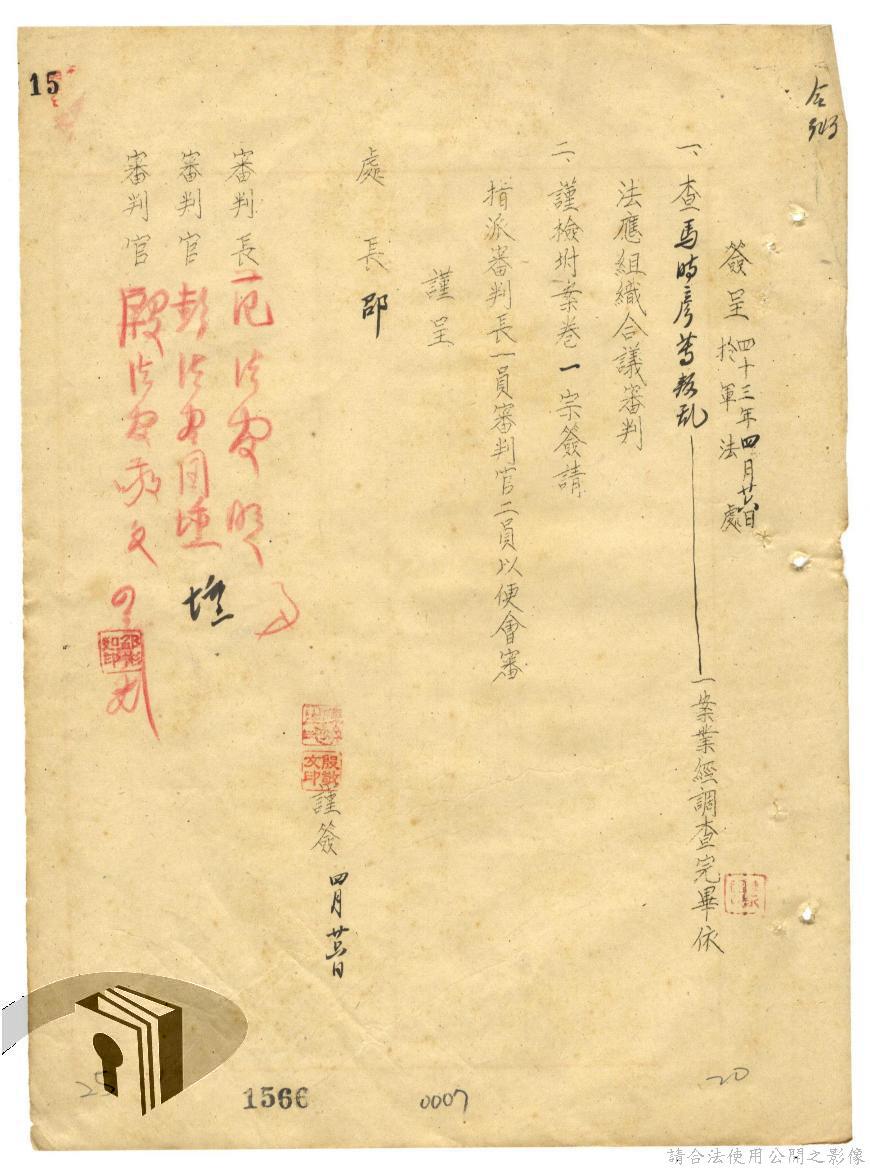 簽呈 四十三年四月廿六日
於軍法處
一、查馬時彥等叛乱一案業經調查完畢依
法應組織合議審判
二、謹檢坿案卷一宗簽請
指派審判長一員審判官二員以便會審
謹呈
處長 邵
殷敬文印
謹簽 四月廿六日
審判長 范法官明
審判官 彭法官國壎 壎
審判官 殷法官敬文
邵彬如印
15
25
1566
0007
20
請合法使用公開之影像